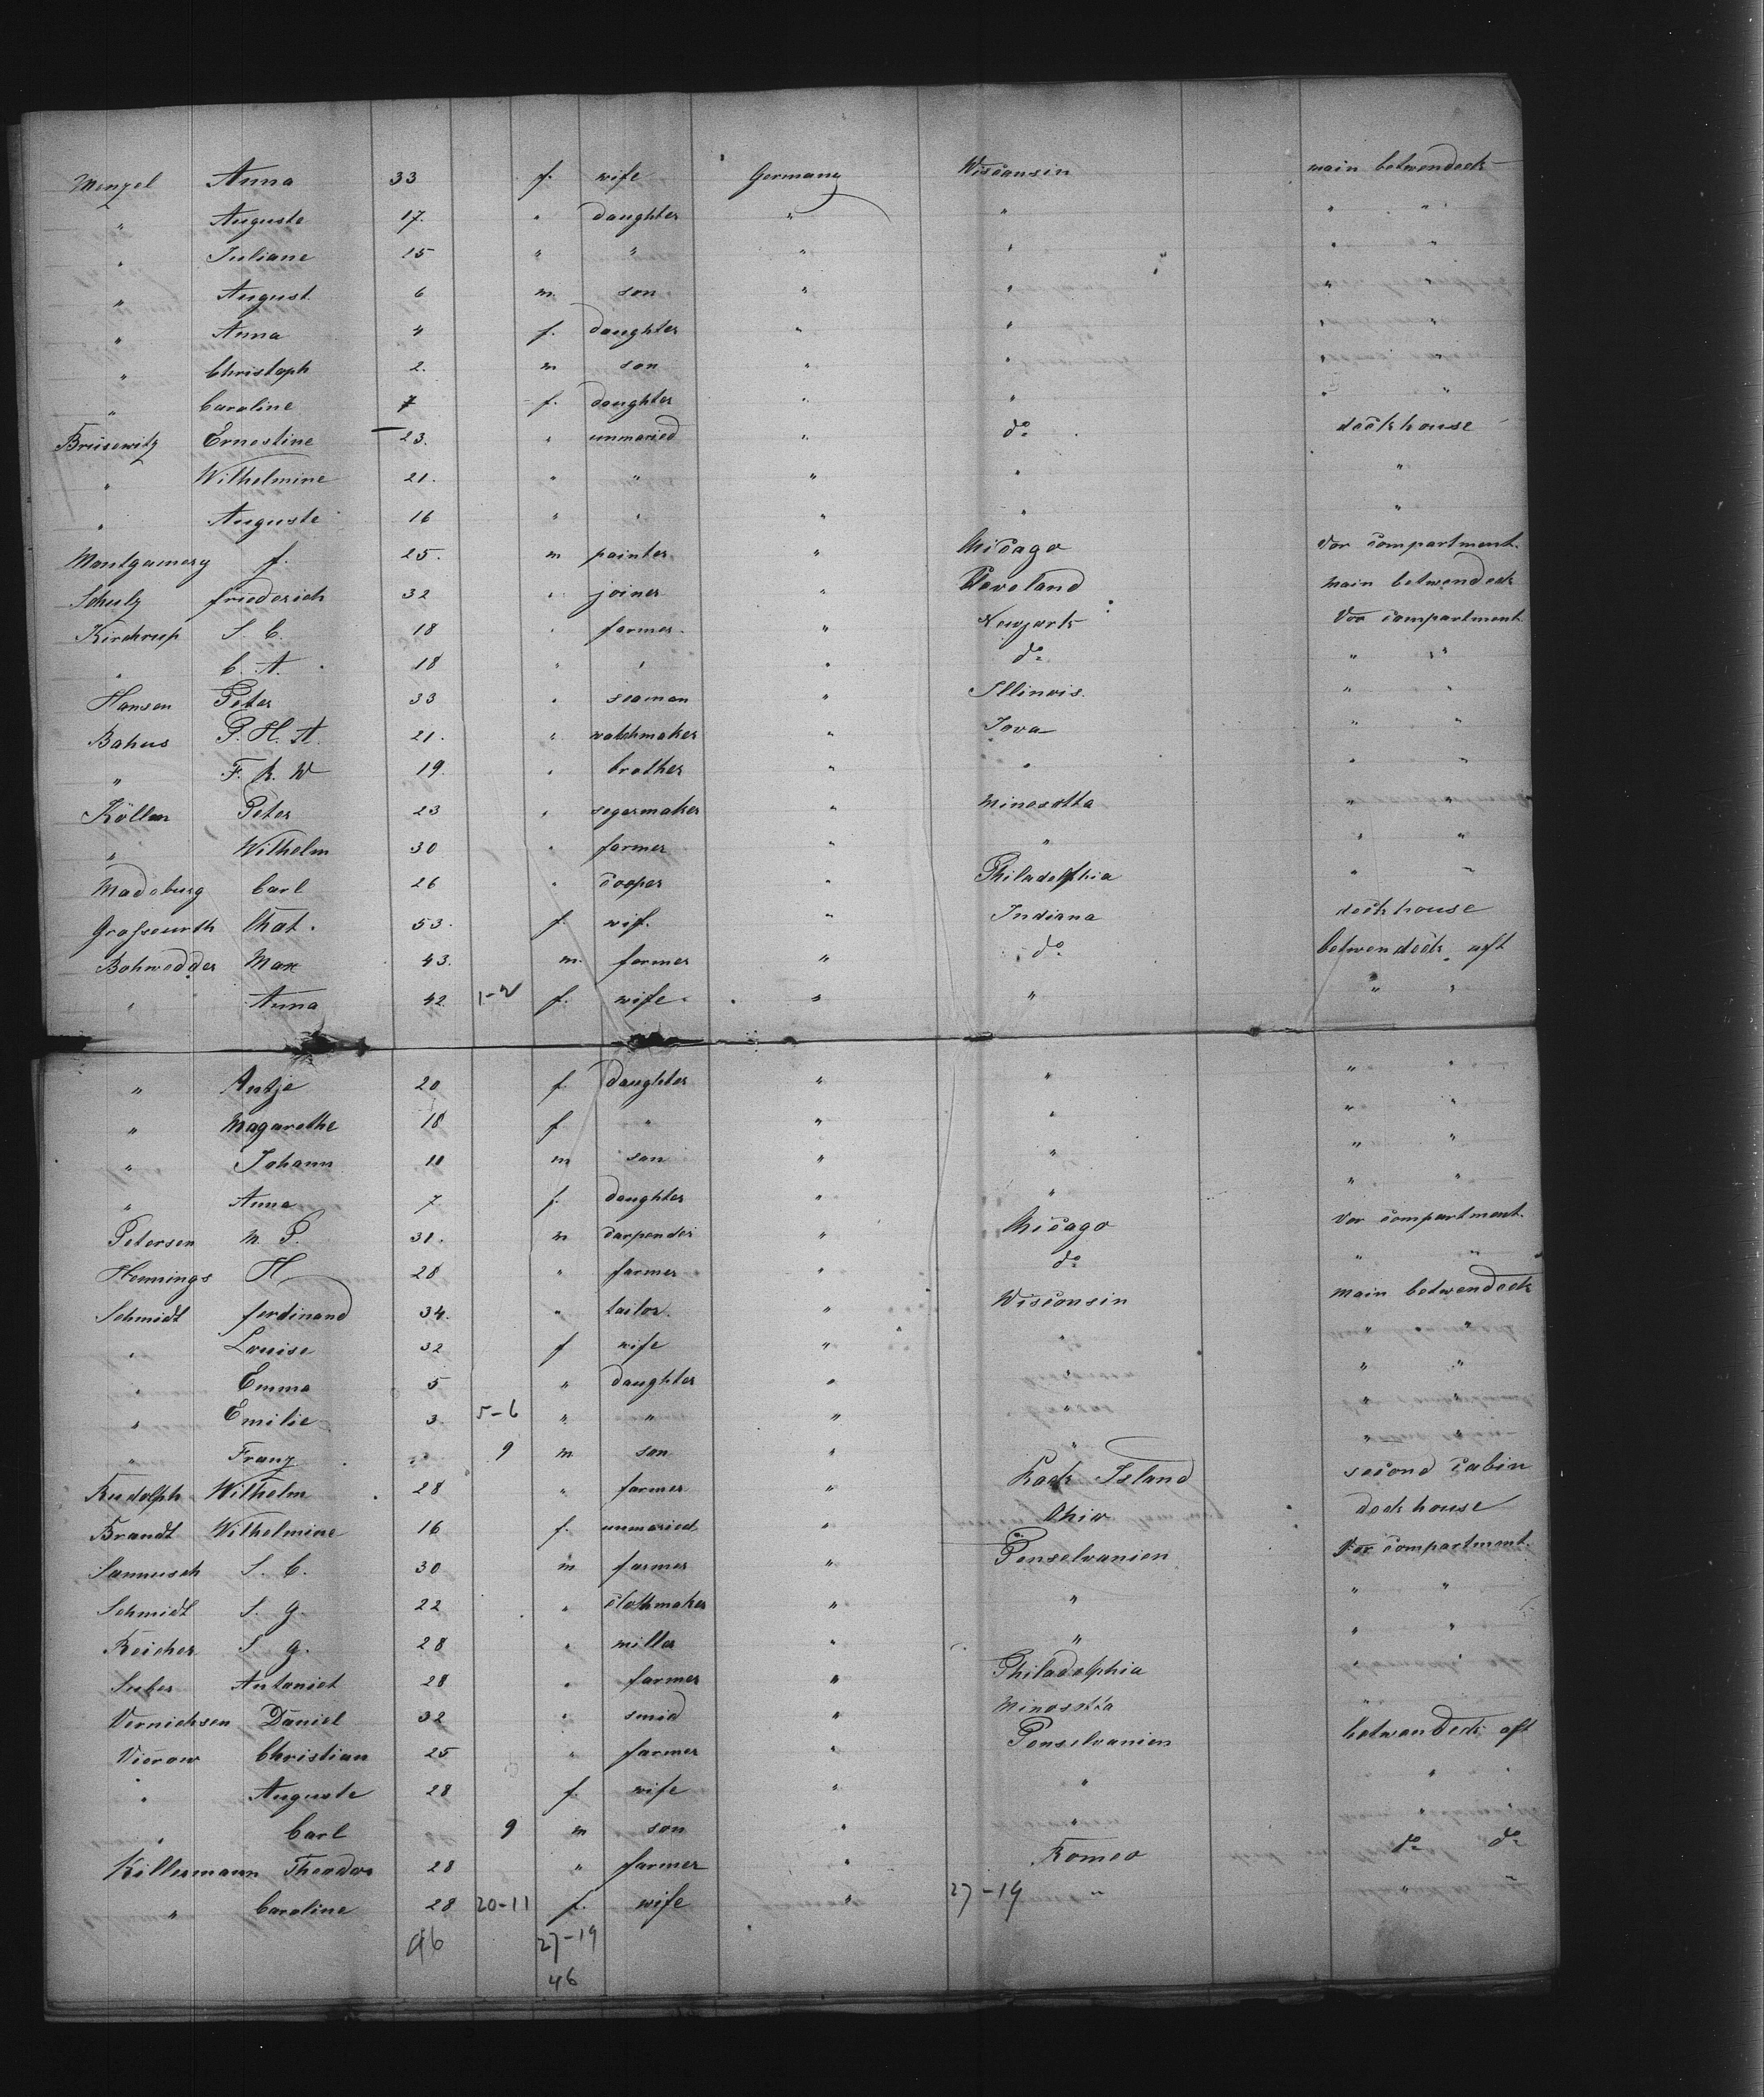 Menzel Anna 33 f. wife Germany Wisconsin main betwendeck
" Auguste 17. " daughter " " " "
" Juliane 15 " " " " " "
" August 6 m. son " " "
" Anna 4 f. daughter " " " "
" Christoph 2. m son " " " "
" Caroline 7 f. daughter " " " "
Brüsewitz Ernestine 23. " unmaried " do deckhouse
" Wilhelmine 21. " " " " "
" Auguste 16 " " " " "
Montgamery f. 25. m painter " Chicago Vor compartment.
Schulz friederich 32 " joiner " Cleveland main betwendeck
Kirchrup S. C. 18 " farmer " Newyark Vor compartment
" C. A. 18 " " " do " "
Hansen Peter 33 " seaman " Illinois. " "
Bahus P. H. A. 21. " watchmaker " Iova " "
" F. R. W 19. " brother " " " "
Köllen Peter 23 " segarmaker " Minesotta " "
" Wilhelm 30 " farmer " " " "
Madeburg Carl 26 " cooper " Philadelphia " "
Grofseurth Chat. 53. f. wif. " Indiana deckhouse
Bohwedder Max 43. m. farmer " do betwendeck aft
" Anna 42 1-2 f. wife " " " "
" Antje 20 f daughter " " " "
" Magarethe 18 f " " " " "
" Johann 11 m son " " " "
" Anna 7 f. daughter " " " "
Petersen M. P. 31. m carpender " Chicago Vor compartment.
Hennings H 28 " farmer " do " "
Schmidt ferdinand 34. " tailor. " Wisconsin main betwendeck
" Louise 32 f wife " " " "
" Emma 5 " daughter " " " "
" Emilie 3 5-6 " " " " "
" Franz 9 m son " " " "
Rudolph Wilhelm 28 " farmer " Rock Island second cabin
Brandt Wilhelmine 16 f. unmaried " Ohio deckhouse
Sannusch S. C. 30 m farmer " Penselvanien Vor compartment.
Schmidt S. G. 22 " clothmaker " " " "
Reicher S G. 28 " miller " " " "
Suber Antoniet 28 " farmer " Philadelphia "
Vernichsen Daniel 32 " smid " Minosotta "
Vierow Christian 25 " farmer " Penselvanien betwendeck aft
" Auguste 28 f. wife " " " "
" Carl 9 m son " " " "
Killermann Theodor 28 " farmer " Romeo do do
" Caroline 28 20-11 f. wife " 27-19 " " "
96 27-19
46